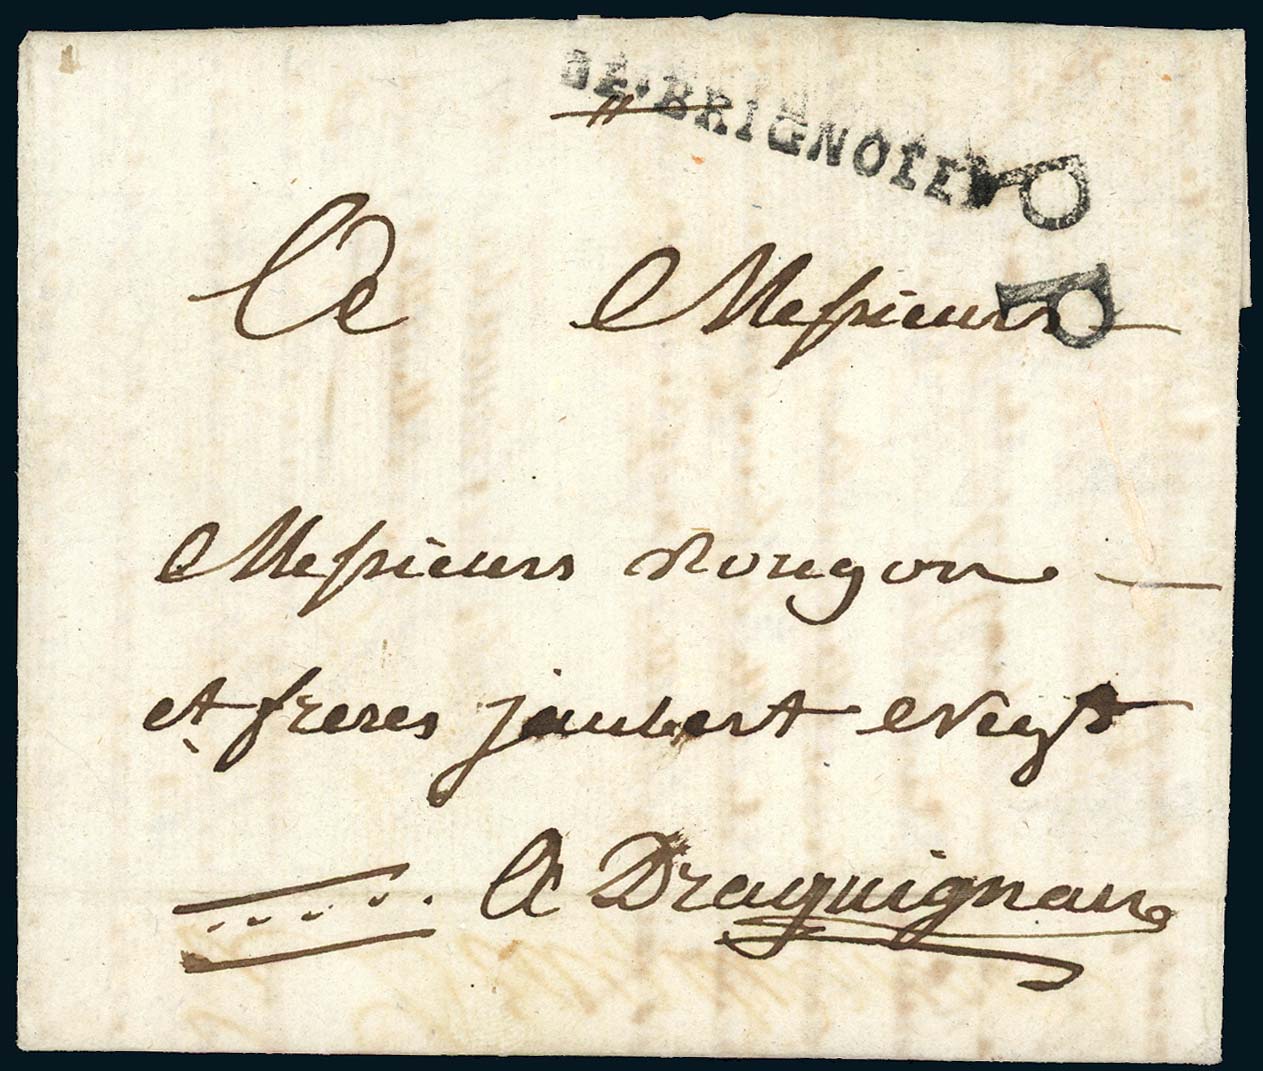 DE.BRIGNOLE
P
P
A Messieurs
Messieurs Rougon
et freres jaubert
A Draguignan